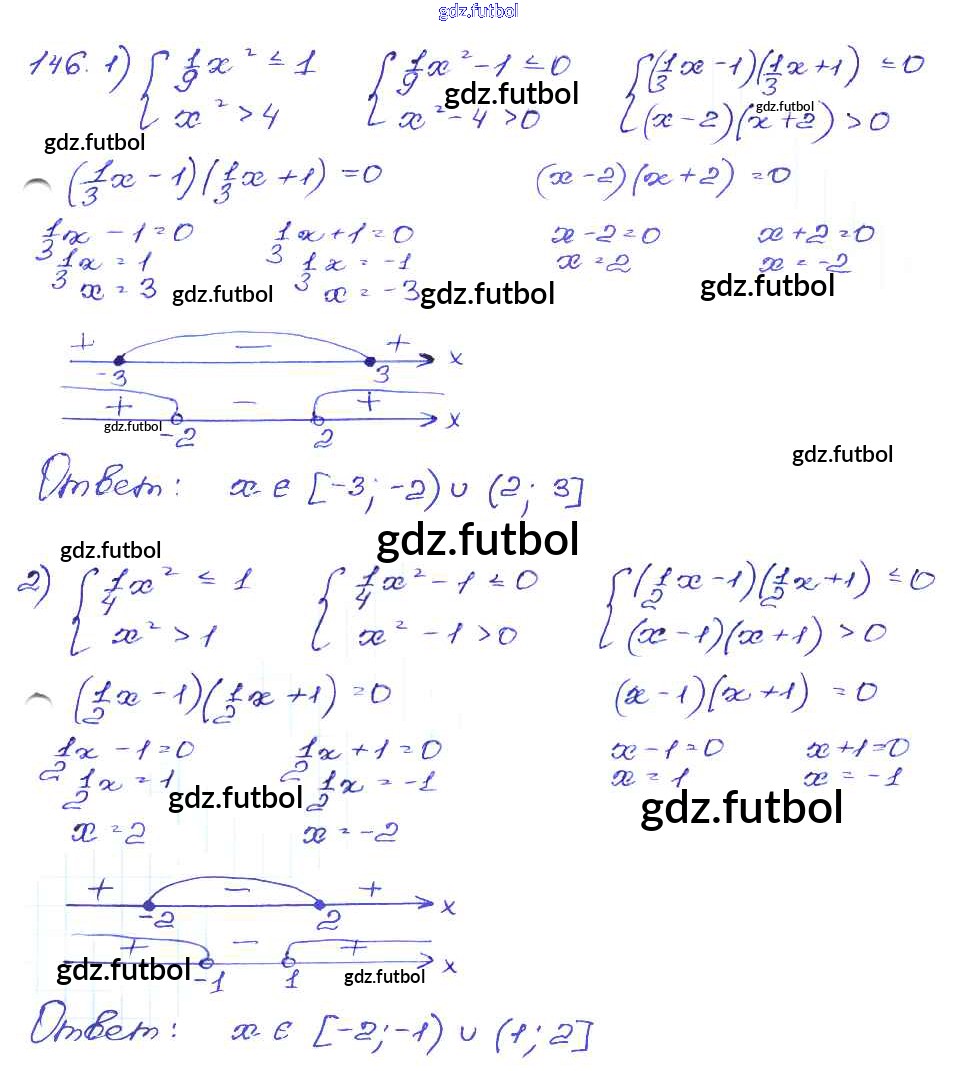 gdz.futbol
146. 1) { 1/9 x² ≤ 1 { 1/9 x² - 1 ≤ 0 { (1/3 x - 1)(1/3 x + 1) ≤ 0
x² > 4 x² - 4 > 0 (x - 2)(x + 2) > 0
gdz.futbol gdz.futbol gdz.futbol
(1/3 x - 1)(1/3 x + 1) = 0 (x - 2)(x + 2) = 0
1/3 x - 1 = 0 1/3 x + 1 = 0 x - 2 = 0 x + 2 = 0
1/3 x = 1 1/3 x = -1 x = 2 x = -2
x = 3 gdz.futbol x = -3 gdz.futbol gdz.futbol
+ − + x
-3 3
+ − + x
gdz.futbol -2 2
gdz.futbol
Ответ: x ∈ [-3; -2) ∪ (2; 3]
gdz.futbol gdz.futbol
2) { 1/4 x² ≤ 1 { 1/4 x² - 1 ≤ 0 { (1/2 x - 1)(1/2 x + 1) ≤ 0
x² > 1 x² - 1 > 0 (x - 1)(x + 1) > 0
(1/2 x - 1)(1/2 x + 1) = 0 (x - 1)(x + 1) = 0
1/2 x - 1 = 0 1/2 x + 1 = 0 x - 1 = 0 x + 1 = 0
1/2 x = 1 1/2 x = -1 x = 1 x = -1
gdz.futbol gdz.futbol
x = 2 x = -2
+ − + x
-2 2
+ − + x
gdz.futbol -1 1 gdz.futbol
Ответ: x ∈ [-2; -1) ∪ (1; 2]